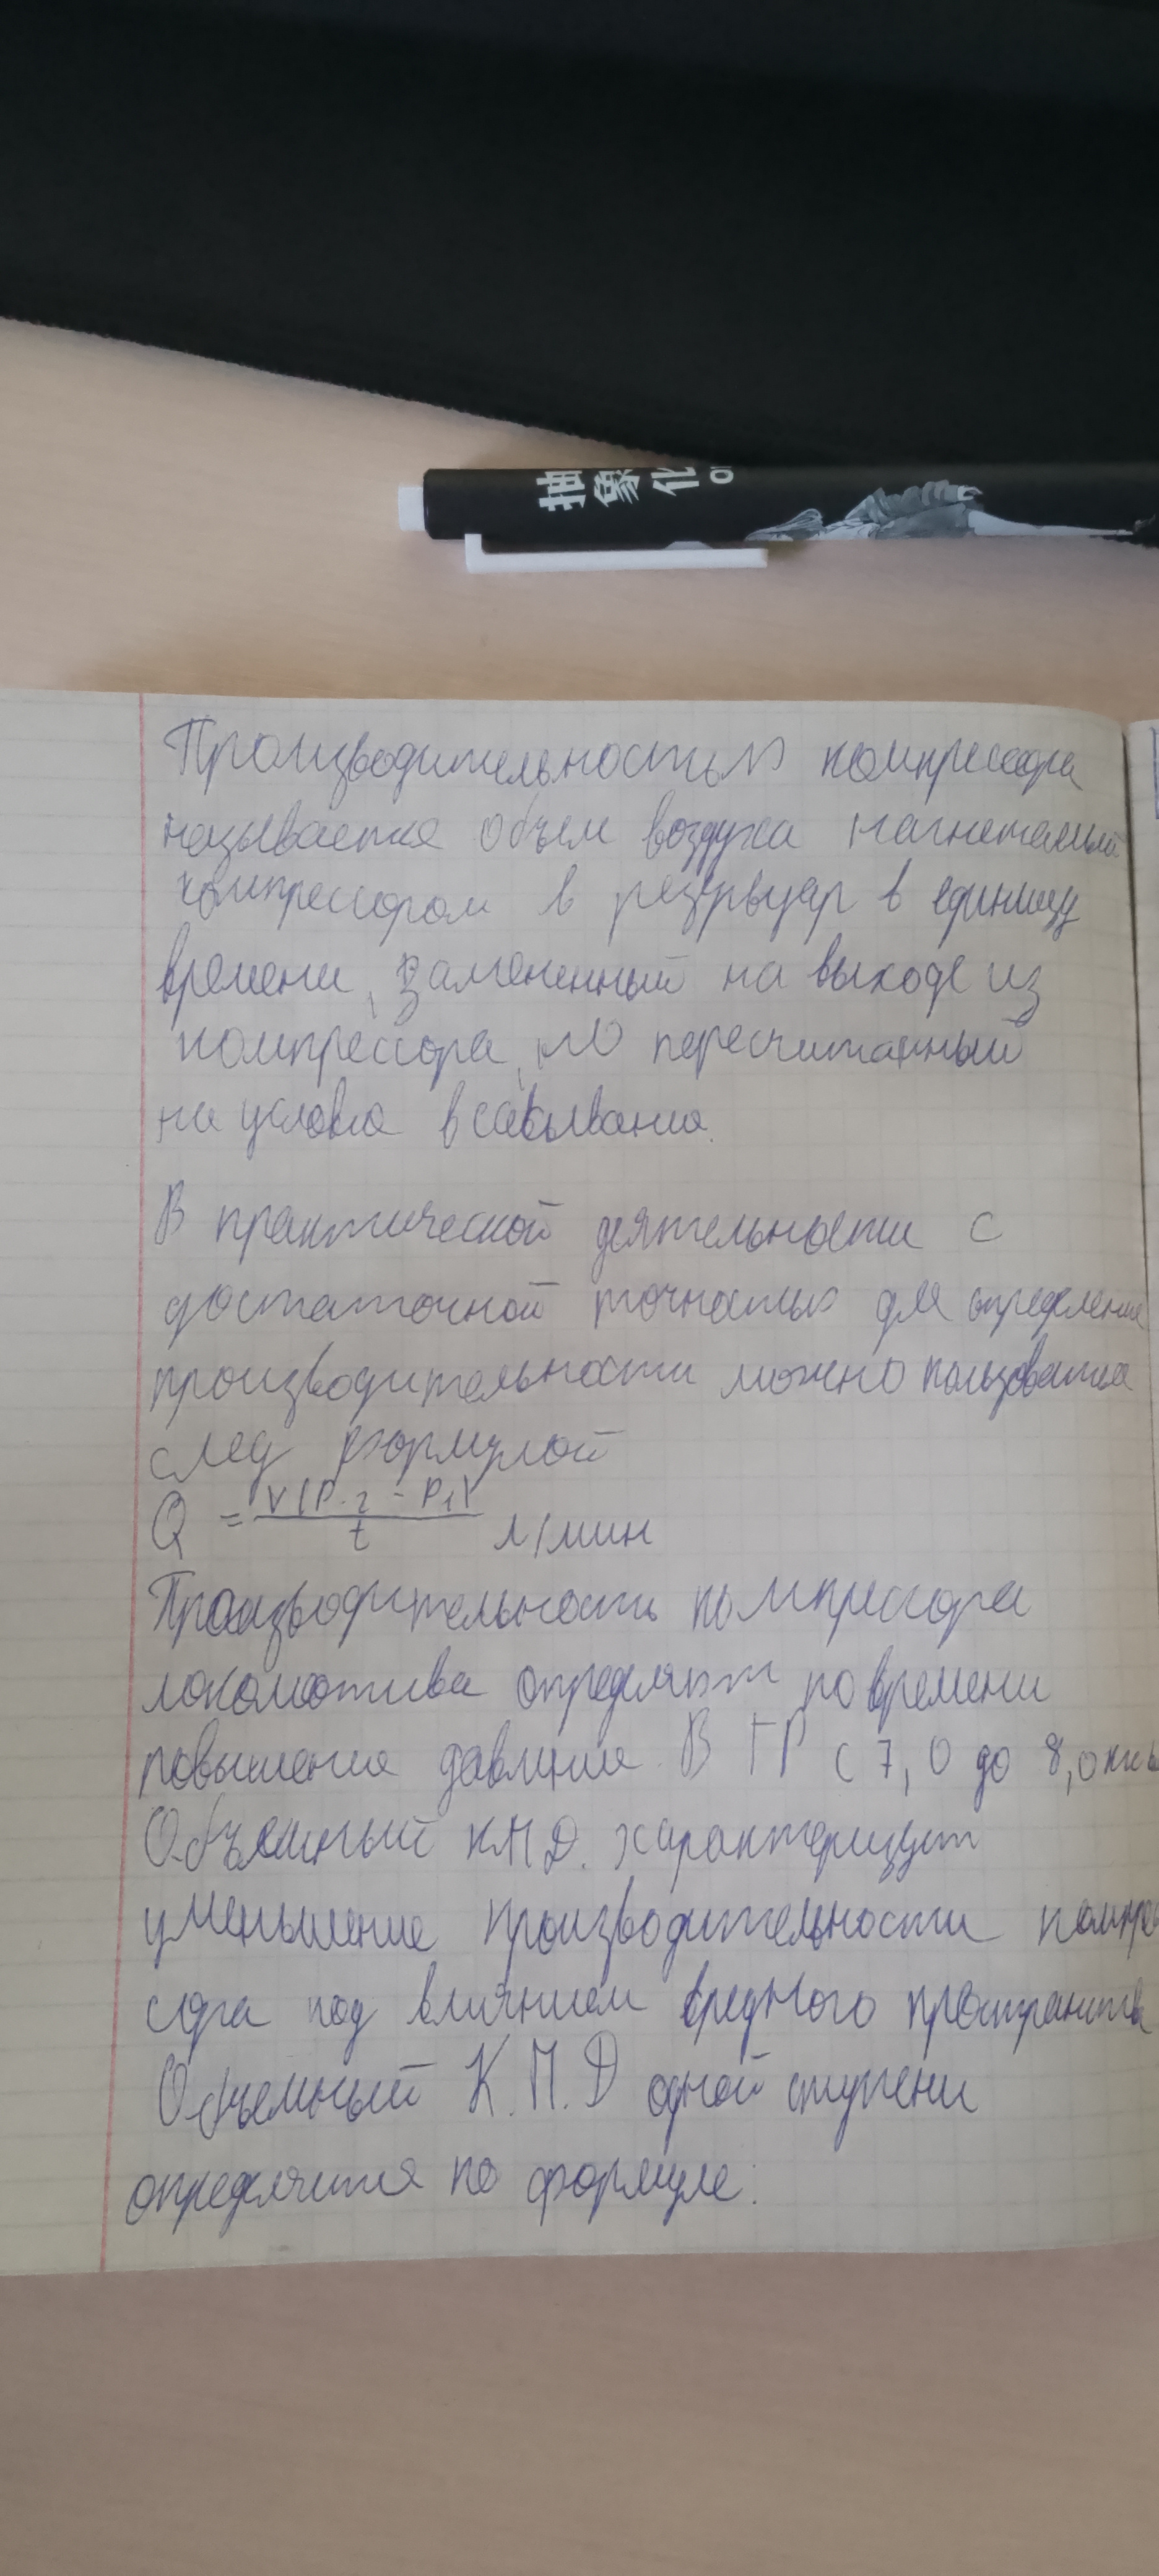 抽象化
Производительностью компрессора
называется объем воздуха нагнетаемый
компрессором в резервуар в единицу
времени, замененный на выходе из
компрессора, но пересчитанный
на условия всасывания.
В практической деятельности с
достаточной точностью для определения
производительности можно пользоваться
след формулой
Q = V(P2 - P1) / t л/мин
Производительность компрессора
локомотива определяют по времени
повышения давления. В ГР с 7,0 до 8,0
Объемный КПД. характеризует
уменьшение производительности компрес
сора под влиянием вредного пространства
Объемный К.П.Д одной ступени
определяется по формуле: